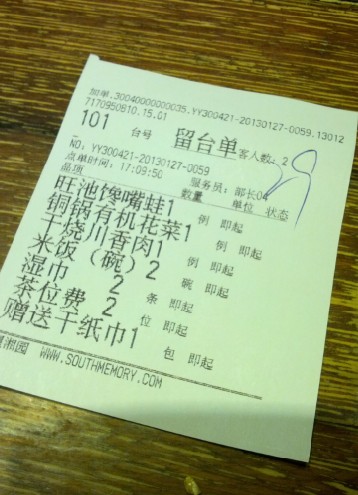 加单.30040000000035.YY300421-20130127-0059.13012
7170950810.15.01
101 台号 留台单 客人数: 2
NO: YY300421-20130127-0059
点单时间: 17:09:50 服务员: 部长04
品项 数量 单位 状态
旺池馋嘴蛙1 例 即起
铜锅有机花菜1 例 即起
干烧川香肉1 例 即起
米饭（碗）2 碗 即起
湿巾 2 条 即起
茶位费 2 位 即起
赠送干纸巾1 包 即起
湘园 WWW.SOUTHMEMORY.COM